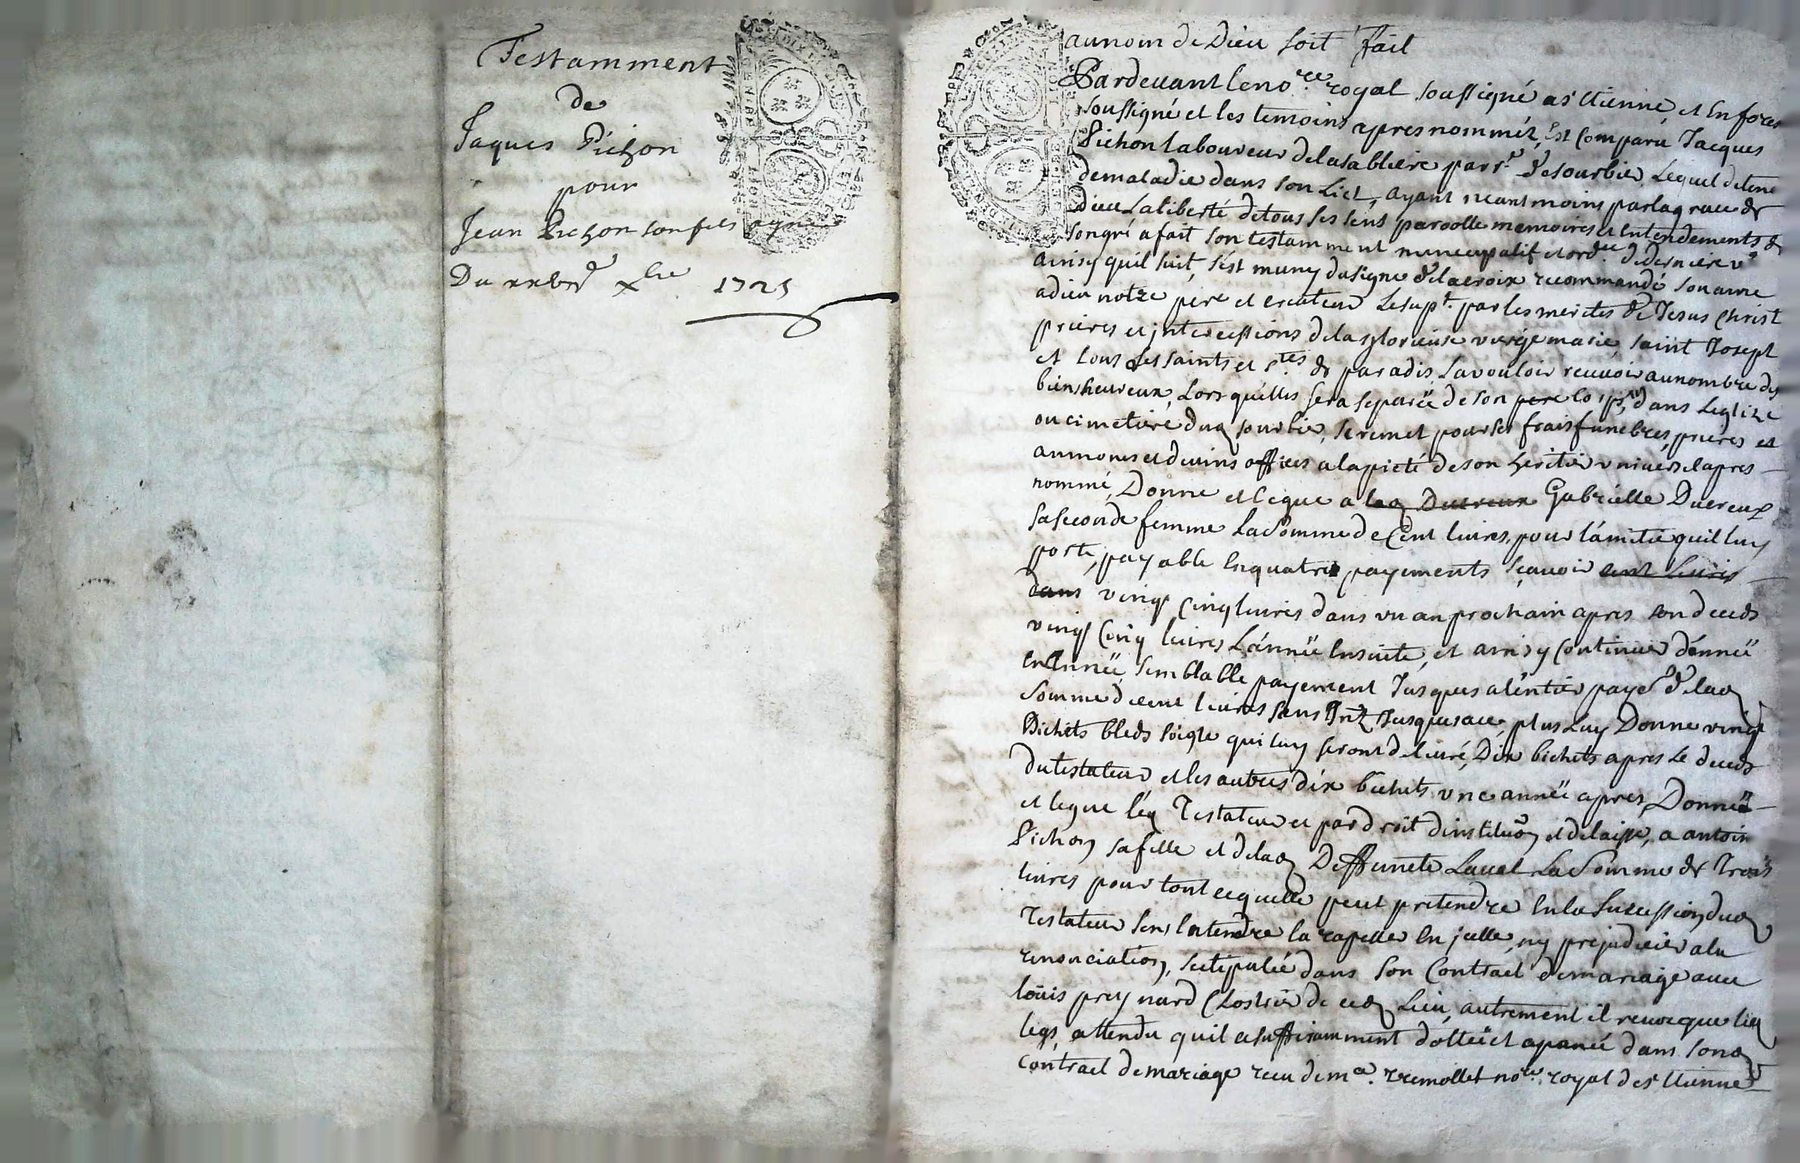 Testamment
de
Jaques Pichon
pour
Jean Pichon son fils ayné
Du xxvıȷᵉ xbre 1725
au nom de Dieu soit fait
Pardevant le noʳᵉ royal soussigné a sᵗ Etienne et en forez
soussigné et les temoins apres nommez, Est comparu Jacques
Pichon laboureur de la sabliere parrᵉ de sourbier, Lequel detenu
de maladie dans son Lict, ayant neantmoins par la grace de
Dieu La liberté de tous ses sens parolle memoires et Entendements de
son gré a fait son testamment nuncupatif et ordʳᵉ de derniere vᵉ
ainsy quil suit, s'est muny du signe de la croix recommandé son ame
a dieu notre pere et createur Le supᵗ. par les merites de Jesus Christ
prieres et jntercessions de la glorieuse vierge marie, saint Joseph
et tous les saints et sᵗᵉˢ de paradis, La vouloir recevoir au nombre des
bien heureux, Lors qu'elles sera separée de son corps, dans L'eglize
ou cimetiere dud sourbier, se remet pour ses frais funebres, prieres et
aumones et divins offices a la pieté de son heritier universel apres
nommé, Donne et legue a lad Duereux Gabrielle Duereux
sa seconde femme La somme de Cent livres, pour l'amitié quil luy
porte, payable en quatre payements sçavoir cent livres
dans vingt cinq livres dans un an prochain apres son deceds
vingt Cinq livres L'année Ensuite, et ainsy Continuer d'année
En année, semblable payement Jusques a l'entier payeᵗ de lad
somme de cent livres sans Jntᶻ Jusques a ce, plus Luy Donne vingt
Bichets bleds soigle qui luy seront delivré, Dix bichets apres Le deceds
du testateur et les autres dix bichets une année apres, Donne
et legue led Testateur et par droit d'instituõn et delaisse, a antoin
Pichon sa fille et de lad Deffuncte Laval La somme de Trois
livres pour tout ce quelle peut pretendre En la sucession dud
Testateur sens Entendre la rapeller En jcelle, ny prejudicier a la
renonciation, stipulée dans son Contrait de mariage avec
loüis preynard Clostrier de ced Lieu, autrement il revocque led
legs, attendu quil a suffisamment dottée et apanée dans sond
Contract de mariage receu de mᵉ. tremollet noʳᵉ. royal de sᵗ Etienne